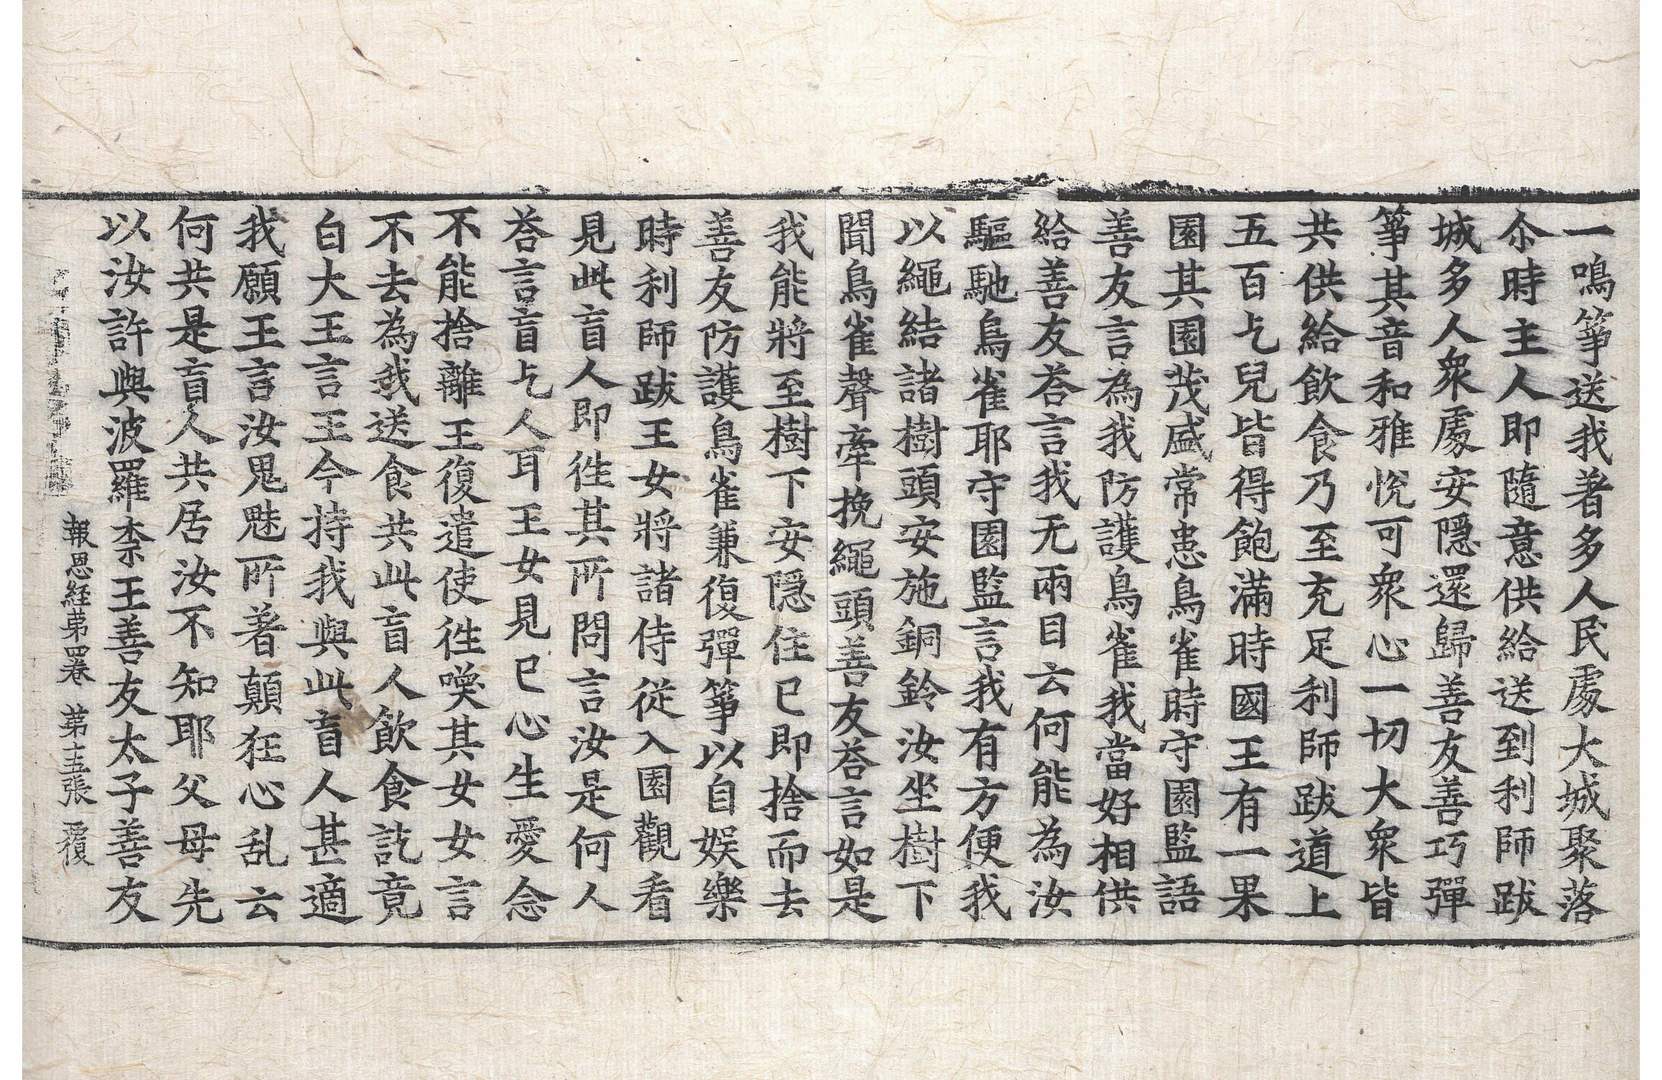 一鳴箏送我著多人民處大城聚落
尒時主人即隨意供給送到利師跋
城多人衆處安隱還歸善友善巧彈
箏其音和雅恱可衆心一切大衆皆
共供給飲食乃至充足利師跋道上
五百乞兒皆得飽滿時國王有一果
園其園茂盛常患鳥雀時守園監語
善友言為我防護鳥雀我當好相供
給善友荅言我无兩目云何能為汝
驅馳鳥雀耶守園監言我有方便我
以繩結諸樹頭安施銅鈴汝坐樹下
聞鳥雀聲牽挽繩頭善友荅言如是
我能將至樹下安隱住已即捨而去
善友防護鳥雀兼復彈箏以自娛樂
時利師跋王女將諸侍從入園觀看
見此盲人即徃其所問言汝是何人
荅言盲乞人耳王女見已心生愛念
不能捨離王復遣使徃喚其女女言
不去為我送食共此盲人飲食訖竟
白大王言王今持我與此盲人甚適
我願王言汝鬼魅所著顛狂心乱云
何共是盲人共居汝不知耶父母先
以汝許與波羅柰王善友太子善友
報恩経苐四卷 苐十五張 覆